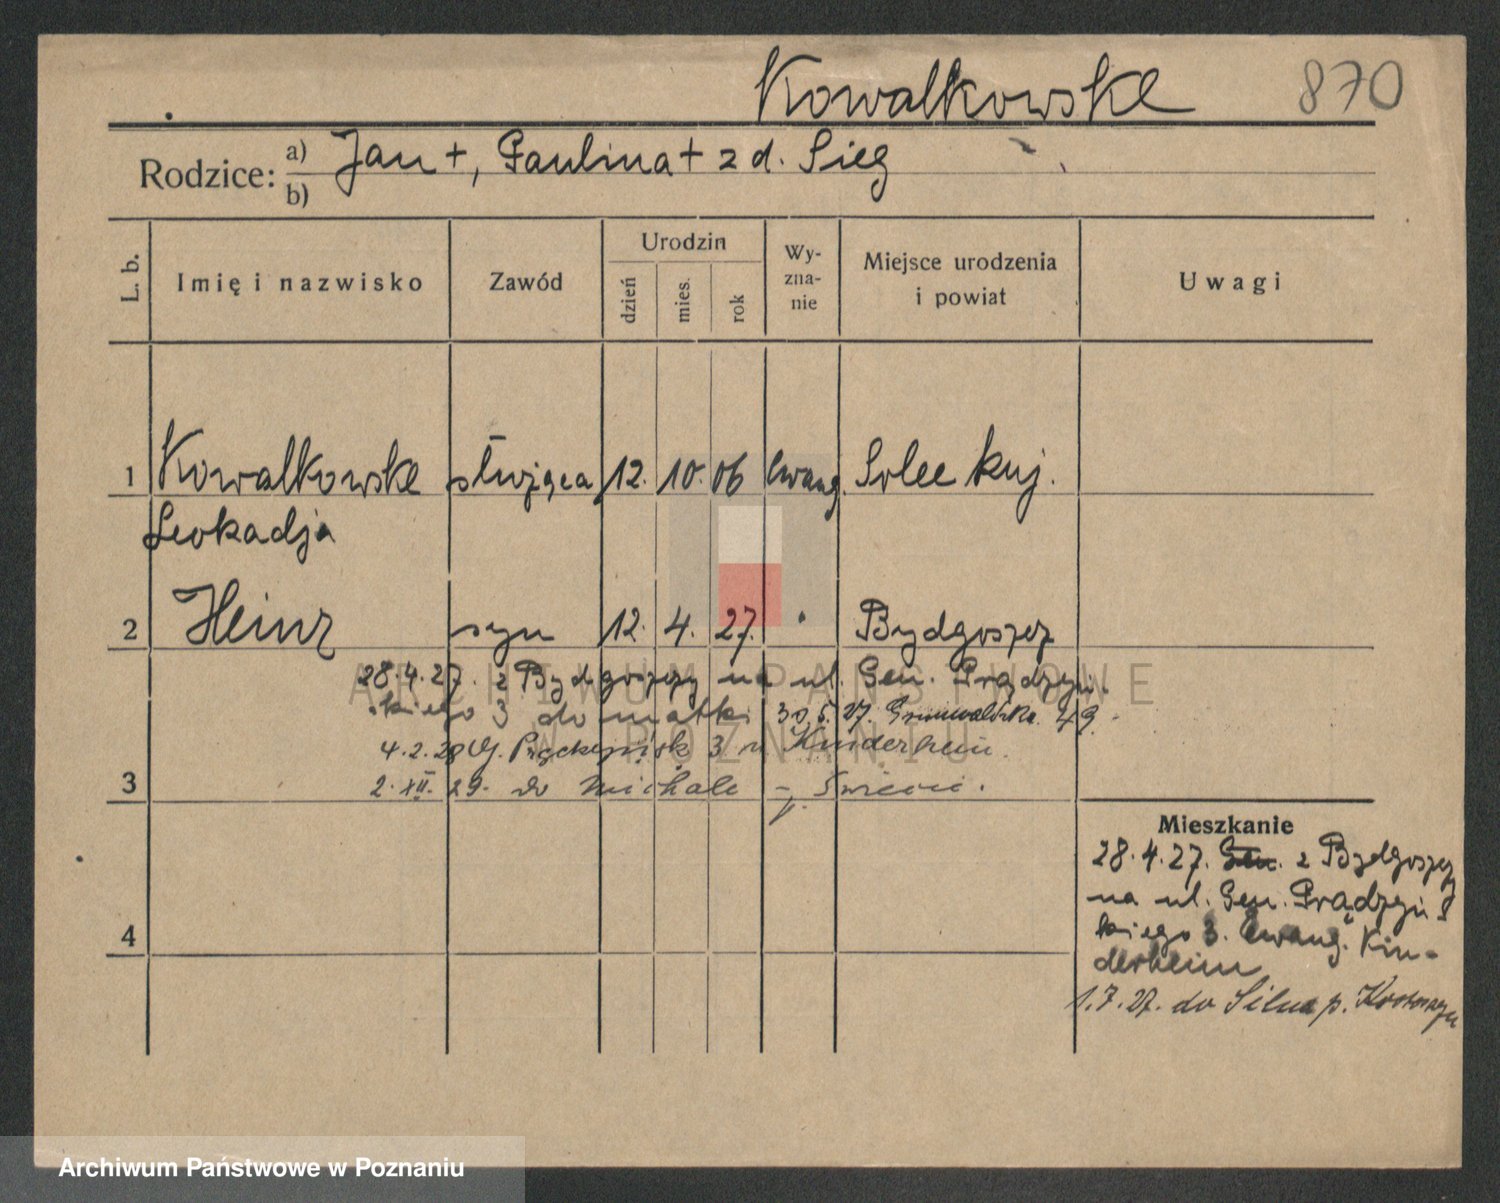 Kowalkowske 870
Rodzice: a) Jan +, Paulina + z d. Sieg
b)
L. b. Imię i nazwisko Zawód Urodzin dzień mies. rok Wyznanie Miejsce urodzenia i powiat Uwagi
1 Kowalkowske służąca 12. 10. 06 ewang. Solec kuj.
Leokadja
2 Heinz syn 12. 4. 27. " Bydgoszcz
28.4.27. z Bydgoszczy na ul. Gen. Prądzyń-
skiego 3 do matki 30.5.27. Grunwaldzka 49.
4.2.28 3 Kinderheim
3 2.XII.29. do Michale p. Świecie.
Mieszkanie
28.4.27. Gen. z Bydgoszczy
na ul. Gen. Prądzyńs
4 kiego 3. Ewang. Kin-
derheim
1.7.27. do Silna p.
ARCHIWUM PAŃSTWOWE
W POZNANIU
Archiwum Państwowe w Poznaniu